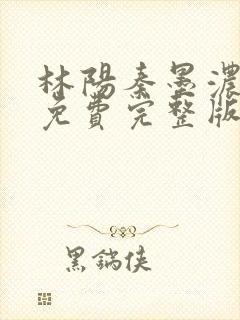 林陽秦墨濃
免費完整版
黑鍋俠